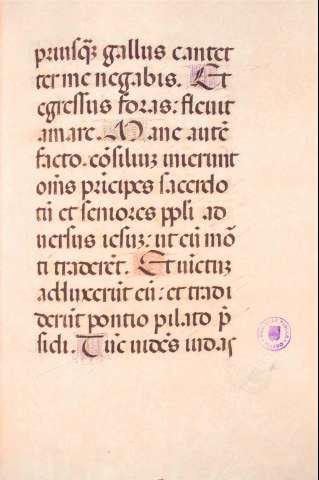 priusq̃ gallus cantet
ter me negabis. Et
egressus foras: fleuit
amare. Mane autẽ
facto. cõsiliuʒ inierunt
om̃s prĩcipes sacerdo
tũ et seniores ppli ad
uersus iesuʒ: ut eũ mõ
ti traderẽt. Et uictuʒ
adduxerũt eũ: et tradi
derũt pontio pilato p̃
sidi. Tũc uidẽs iudas